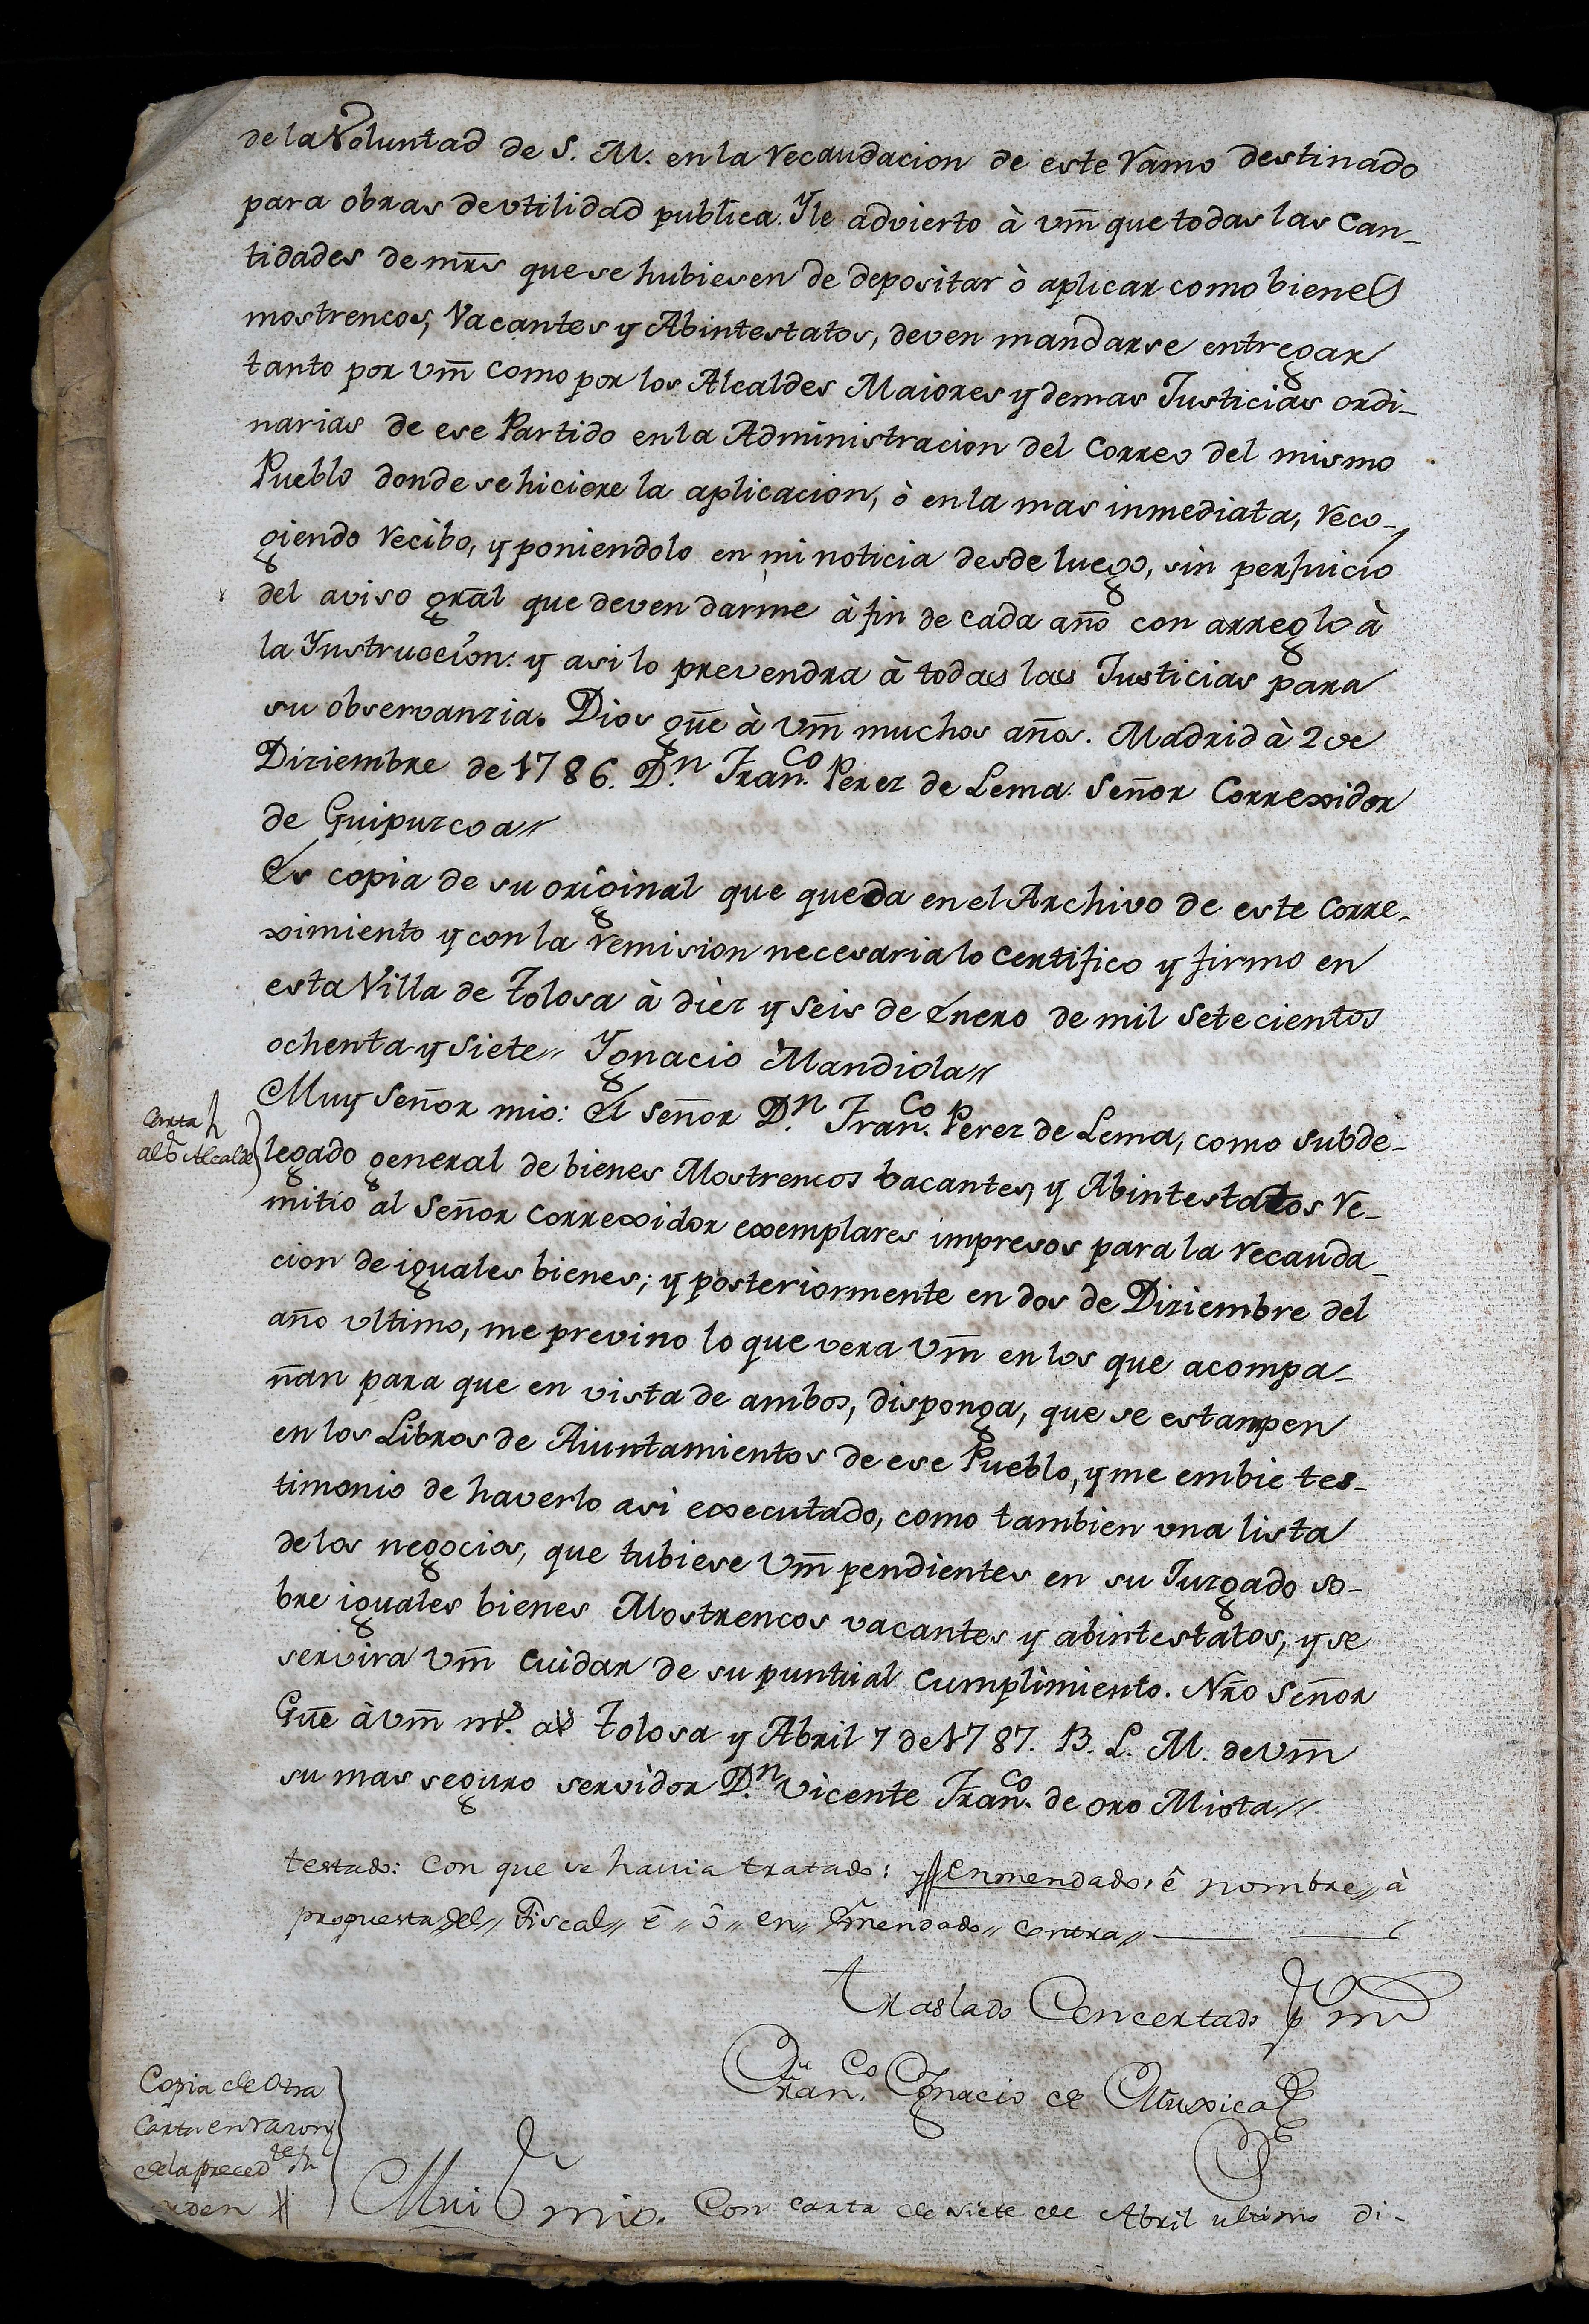 de la Voluntad de S. M. en la recaudacion de este ramo destinado
para obras de vtilidad publica. Y le advierto à Vm̃ que todas las can-
tidades de mr̃s que se hubiesen de depositar ò aplicar como bienes
mostrencos, Vacantes y Abintestatos, deven mandarse entregar
tanto por Vm̃ como por los Alcaldes Maiores y demas Justicias ordi-
narias de ese Partido en la Administracion del Correo del mismo
Pueblo donde se hiciere la aplicacion, ò en la mas inmediata, reco-
giendo recibo, y poniendolo en mi noticia desde luego, sin perjuicio
del aviso gral que deven darme à fin de cada año con arreglo à
la Ynstruccion: y asi lo prevendra à todas las Justicias para
su observanzia. Dios gũe à Vm̃ muchos años. Madrid à 2 de
Diziembre de 1786. D.n Fran.co Perez de Lema. Señor Correxidor
de Guipuzcoa //
Es copia de su original que queda en el Archivo de este Corre-
ximiento y con la remision necesaria lo certifico y firmo en
esta Villa de Tolosa à diez y seis de Enero de mil setecientos
ochenta y siete // Ygnacio Mandiola //
Carta
al Sr Alcalde
Muy Señor mio: El señor D.n Fran.co Perez de Lema, como subde-
legado general de bienes Mostrencos bacantes, y Abintestatos re-
mitio al Señor Correxidor exemplares impresos para la recauda-
cion de iguales bienes; y posteriormente en dos de Diziembre del
año vltimo, me previno lo que vera Vm̃ en los que acompa-
ñan para que en vista de ambos, disponga, que se estampen
en los Libros de Aiuntamientos de ese Pueblo, y me embie tes-
timonio de haverlo asi executado, como tambien vna lista
de los negocios, que tubiese Vm̃ pendientes en su Juzgado so-
bre iguales bienes Mostrencos vacantes y abintestatos, y se
servira Vm̃ cuidar de su puntual cumplimiento. Nr̃o Señor
Gũe à Vm̃ m.s a.s Tolosa y Abril 7 de 1787. B. L. M. de Vm̃
su mas seguro servidor D.n Vicente Fran.co de oro Miota //
testado: con que se havia tratado: y // enmendado, ê nombre // à
propuesta del // Fiscal // ê // ô // en // enmendado // contra //
traslado Concertado p mi
Fran.co Ignacio de Muxica
Copia de otra
Carta en razon
de la preced.te
orden
Mui S mio. Con carta de siete de Abril ultimo di-